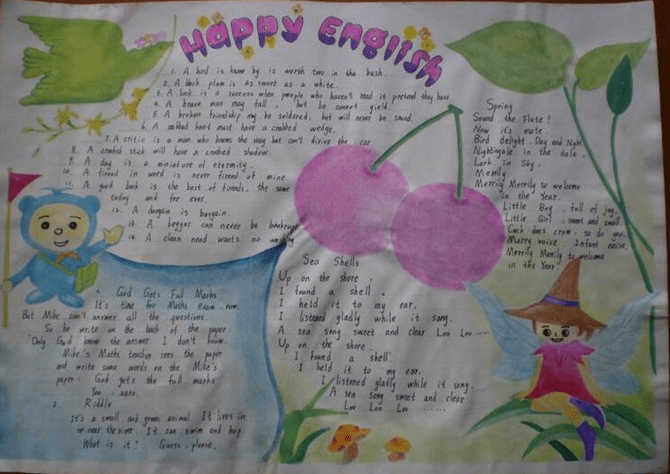 Happy English
1. A bird is know by is worth two in the bush.
2. A black plum is as sweet as a white.
3. A book is a success when people who haven't read it pretend they have.
4. A brave man may fall, but he cannot yield.
5. A broken friendship may be soldered, but will never be sound.
6. A crabbed knot must have a crabbed wedge.
7. A critic is a man who knows the way but can't drive the car.
8. A crooked stick will have a crooked shadow.
9. A day is a miniature of eternity.
10. A friend in word is never friend of mine.
11. A good book is the best of friends, the same
today and for ever.
12. A bargain is bargain.
13. A beggar can never be bankrupt
14. A clean hand wants no washing
1. God Gets Full Marks
It's time for Maths exam now.
But Mike can't answer all the questions.
So he write on the back of the paper
"Only God know the answer. I don't know.
Mike's Maths teacher sees the paper
and write some words on the Mike's
paper: God gets the full marks
You - zero.
2 Riddle
It's a small and green animal. It lives in
or near the river. It can swim and hop.
What is it? Guess, please.
Sea Shells
Up on the shore,
I found a shell,
I held it to my ear.
I listened gladly while it song.
A sea song sweet and clear Loo Loo ---
Up on the shore.
I found a shell
I held it to my ear.
I listened gladly while it song.
A sea song sweet and clear
Loo Loo Loo ......
Spring
Sound the Flute!
Now it's mute.
Bird delight. Day and Night
Nightingale in the dale.
Lark in Sky.
Merrily
Merrily Merrily to welcome
in the Year.
Little Boy, full of joy.
Little Girl, sweet and small
Cock does crow, so do you.
Merry voice, Infant noise.
Merrily Merrily to welcome
in the Year